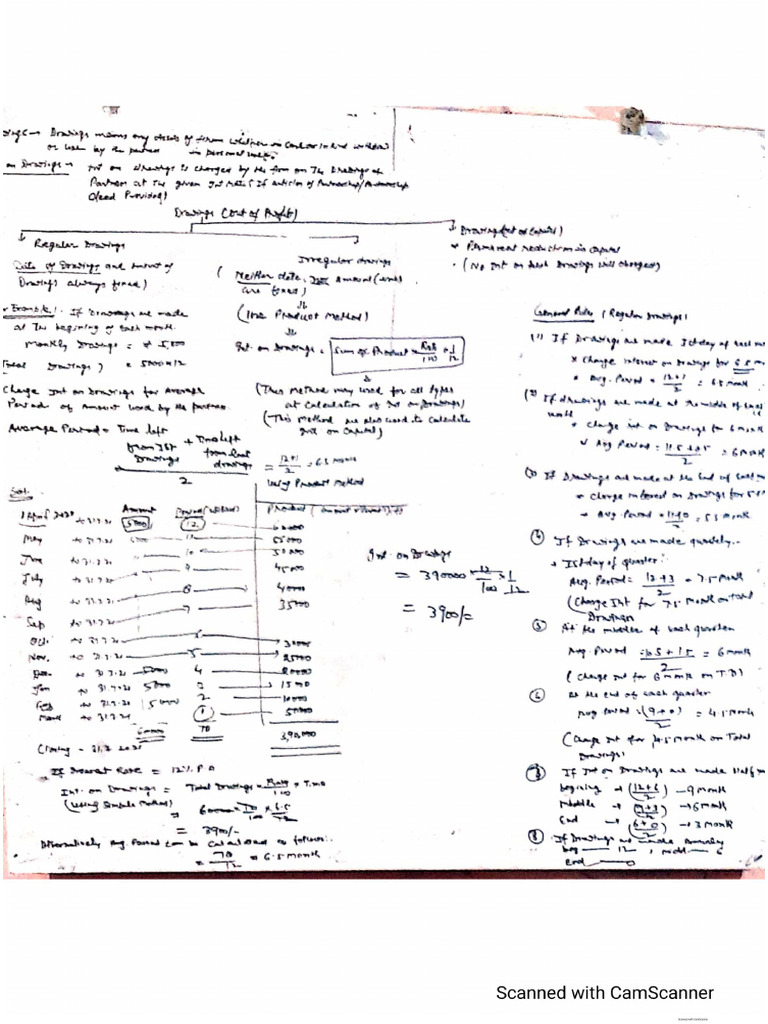 Drawings means any
or use by the partner in personal use.
on Drawings → Int on drawings is charged by the firm on The Drawings of
Partner at The given Int Rate (If articles of Partnership/Partnership
Deed Provides)
Drawings (out of Profit)
Drawing (out of Capital)
* Permanent reduction in capital
• (No Int on such Drawings will charged)
Regular Drawings
Date of Drawings and amount of
Drawings always fixed)
Irregular drawings
(Neither date, amount
are fixed)
(Use Product Method)
Int. on Drawings = Sum of Product × Rate/100 × 1/12
(This Method may used for all types
of calculation of Int on Drawings)
(This Method are also used to calculate
Int on Capital)
Example: If Drawings are made
at The beginning of each month.
Monthly Drawings = ₹ 5,000
Drawings) = 5000×12
Charge Int on Drawings for Average
Period of amount used by the partner.
Average Period = Time left from Ist Drawings + Time left from last drawings / 2
= 12+1/2 = 6.5 month
Using Product Method
Sol:
Amount Product
1 April 2020 to 31.3.21 5000 12 60000
May to 31.3.21 55000
June to 31.3.21 10 50000
July to 31.3.21 9 45000
Aug to 31.3.21 8 40000
Sep to 31.3.21 7 35000
Oct. to 31.3.21 6 30000
Nov. to 31.3.21 5 25000
Dec. to 31.3.21 5000 4 20000
Jan to 31.3.21 5000 3 15000
Feb to 31.3.21 5000 2 10000
March to 31.3.21 1
60000 78 3,90,000
Closing - 31.3.2021
Int. on Drawings
= 390000 × 12/100 × 1/12
= 3900/-
If Interest Rate = 12% P.A
Int. on Drawings = Total Drawings × Rate/100 × Time
(Using Simple Method)
= 3900/-
Alternatively Avg. Period can be calculated as follows:
= 78/12 = 6.5 month
General Rules (Regular Drawings)
(1) If Drawings are made Ist day of each
* Charge interest on Drawings for 6.5
* Avg. Period = 12+1/2 = 6.5 month
(2) If drawings are made at the middle of each
month
* Charge int on Drawings for 6 month
Avg Period = 11.5+0.5/2 = 6 month
(3) If Drawings are made at the End of each
* Charge interest on Drawings for 5.5
* Avg. Period = 11+0/2 = 5.5 month
④ If Drawings are made quarterly..
Ist day of quarter:
Avg. Period = 12+3/2 = 7.5 month
(Charge Int for 7.5 month on total
Drawings
⑤ At the middle of each quarter
Avg. Period = 10.5+1.5/2 = 6 month
(Charge Int for 6 month on T.D)
⑥ At the end of each quarter
Avg Period = (9+0)/2 = 4.5 month
(Charge Int for 4.5 month on Total
Drawings)
⑦ If Int on Drawings are made
begining → (12+6/2) → 9 month
Middle → (9+3/2) → 6 month
End → (6+0/2) → 3 month
⑧ If Drawings are made
beg 12, midd 6
end 0
Scanned with CamScanner